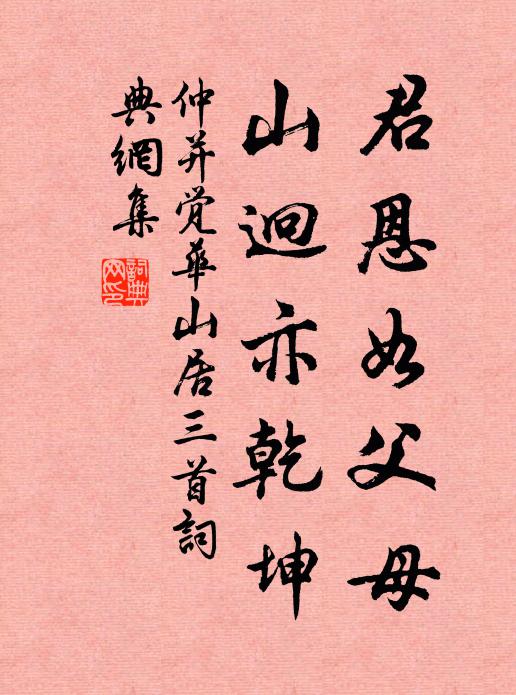 君恩如父母
山迥亦乾坤
仲并覺華山居三首詞
典網集
詞典網印